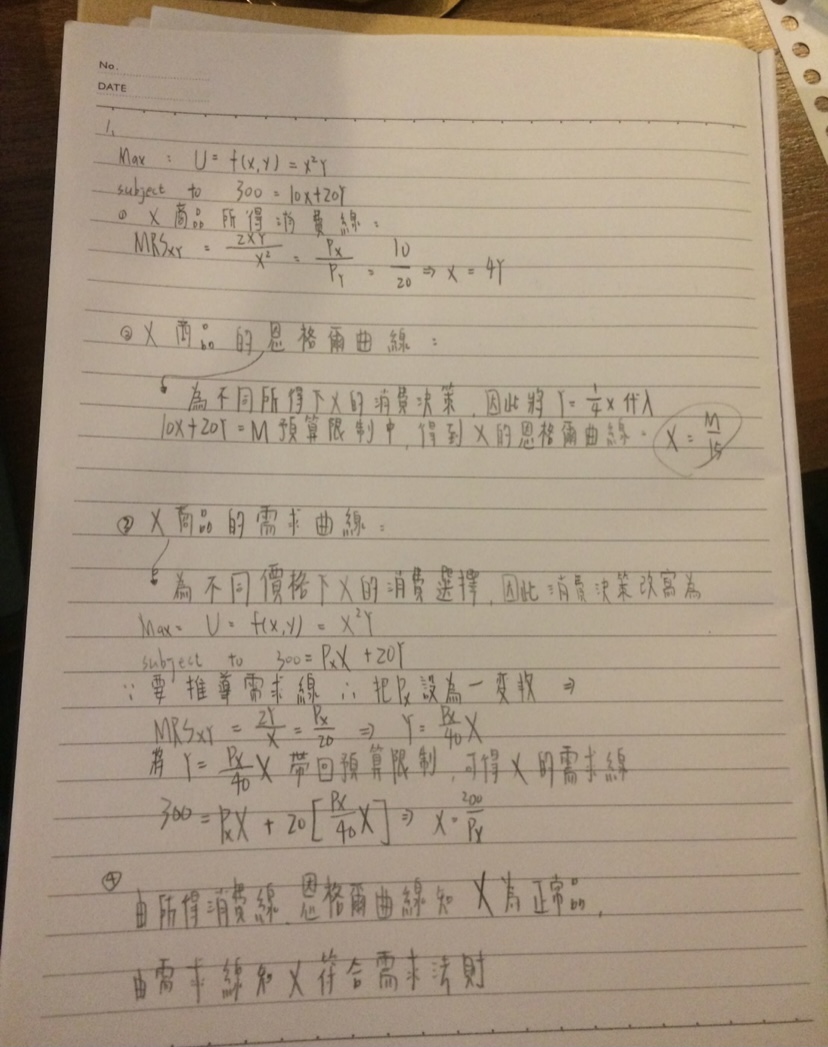 No.
DATE
1.
Max : U = f(x,Y) = x²Y
subject to 300 = 10x+20Y
① X 商品所得消費線:
MRSxY = 2XY/X² = Px/PY = 10/20 ⇒ X = 4Y
② X 商品的恩格爾曲線:
為不同所得下X的消費決策,因此將 Y = 1/4 X 代入
10X+20Y = M 預算限制中,得到X的恩格爾曲線. X = M/15
③ X 商品的需求曲線:
為不同價格下X的消費選擇,因此消費決策改寫為
Max = U = f(x,Y) = X²Y
subject to 300 = PxX + 20Y
∵ 要推導需求線 ∴ 把Px設為一變數 ⇒
MRSxY = 2Y/X = Px/20 ⇒ Y = Px/40 X
將 Y = Px/40 X 帶回預算限制,可得X的需求線
300 = PxX + 20[Px/40 X] ⇒ X = 200/Px
④
由所得消費線、恩格爾曲線知 X為正常品,
由需求線知X符合需求法則